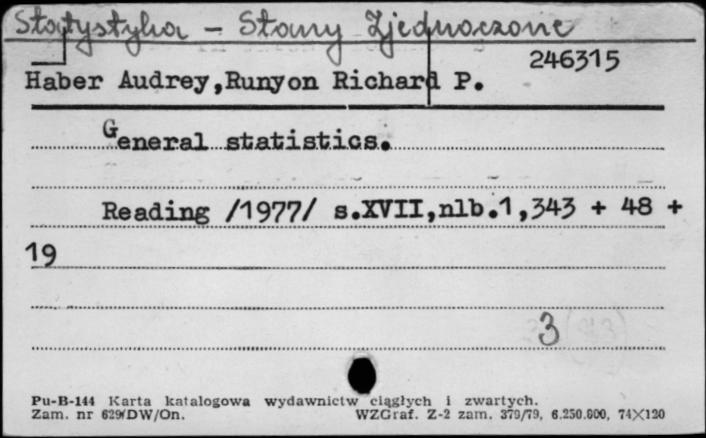 Statystyka - Stany Zjednoczone
246315
Haber Audrey,Runyon Richard P.
General statistics.
Reading /1977/ s.XVII,nlb.1,343 + 48 +
19
3
Pu-B-144 Karta katalogowa wydawnictw ciągłych i zwartych.
Zam. nr 629/DW/On. WZGraf. Z-2 zam. 379/79, 6.250.000, 74X120